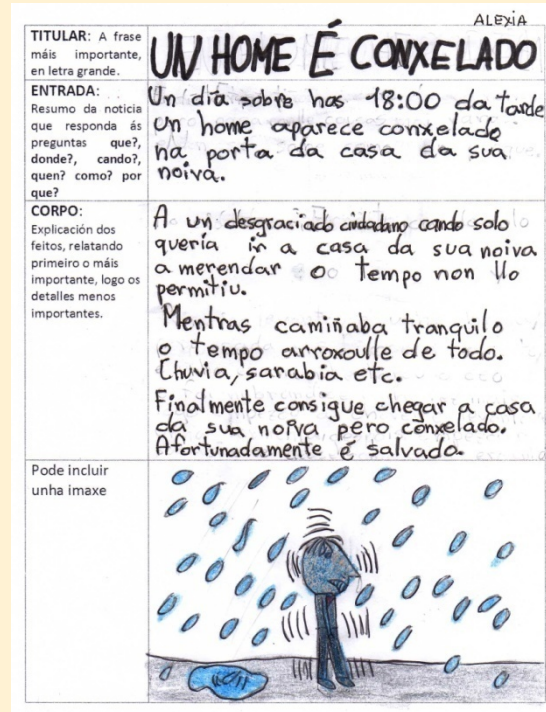 ALEXIA
TITULAR: A frase
máis importante,
en letra grande.
UN HOME É CONXELADO
ENTRADA:
Resumo da noticia
que responda ás
preguntas que?,
donde?, cando?,
quen? como? por
que?
Un día sobre has 18:00 da tarde
un home aparece conxelado
na porta da casa da sua
noiva.
CORPO:
Explicación dos
feitos, relatando
primeiro o máis
importante, logo os
detalles menos
importantes.
A un desgraciado cidadano cando solo
quería ir a casa da sua noiva
a merendar o tempo non llo
permitiu.
Mentras camiñaba tranquilo
o tempo arroxoulle de todo.
Chuvia, sarabia etc.
Finalmente consigue chegar a casa
da sua noiva pero conxelado.
Afortunadamente é salvado.
Pode incluir
unha imaxe